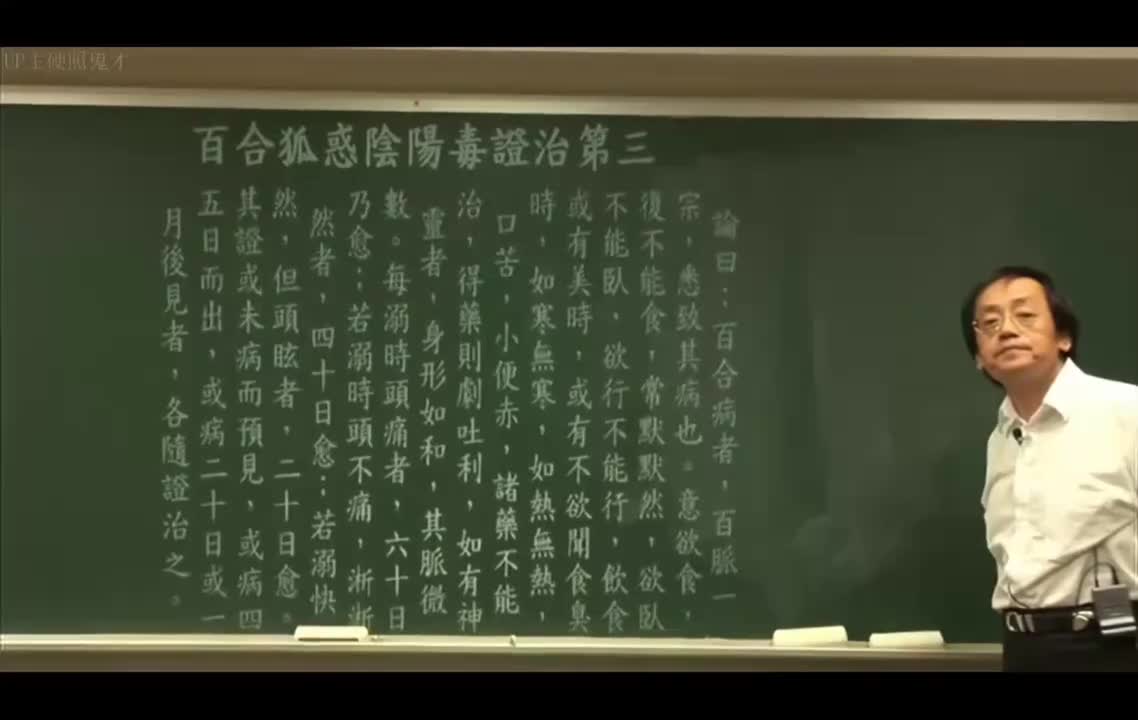 UP主硬照鬼才
百合狐惑陰陽毒證治第三
論曰:百合病者,百脈一
宗,悉致其病也。意欲食,
復不能食,常默默然,欲臥
不能臥,欲行不能行,飲食
或有美時,或有不欲聞食臭
時,如寒無寒,如熱無熱,
口苦,小便赤,諸藥不能
治,得藥則劇吐利,如有神
靈者,身形如和,其脈微
數。每溺時頭痛者,六十日
乃愈;若溺時頭不痛,淅淅
然者,四十日愈;若溺快
然,但頭眩者,二十日愈。
其證或未病而預見,或病四
五日而出,或病二十日或一
月後見者,各隨證治之。